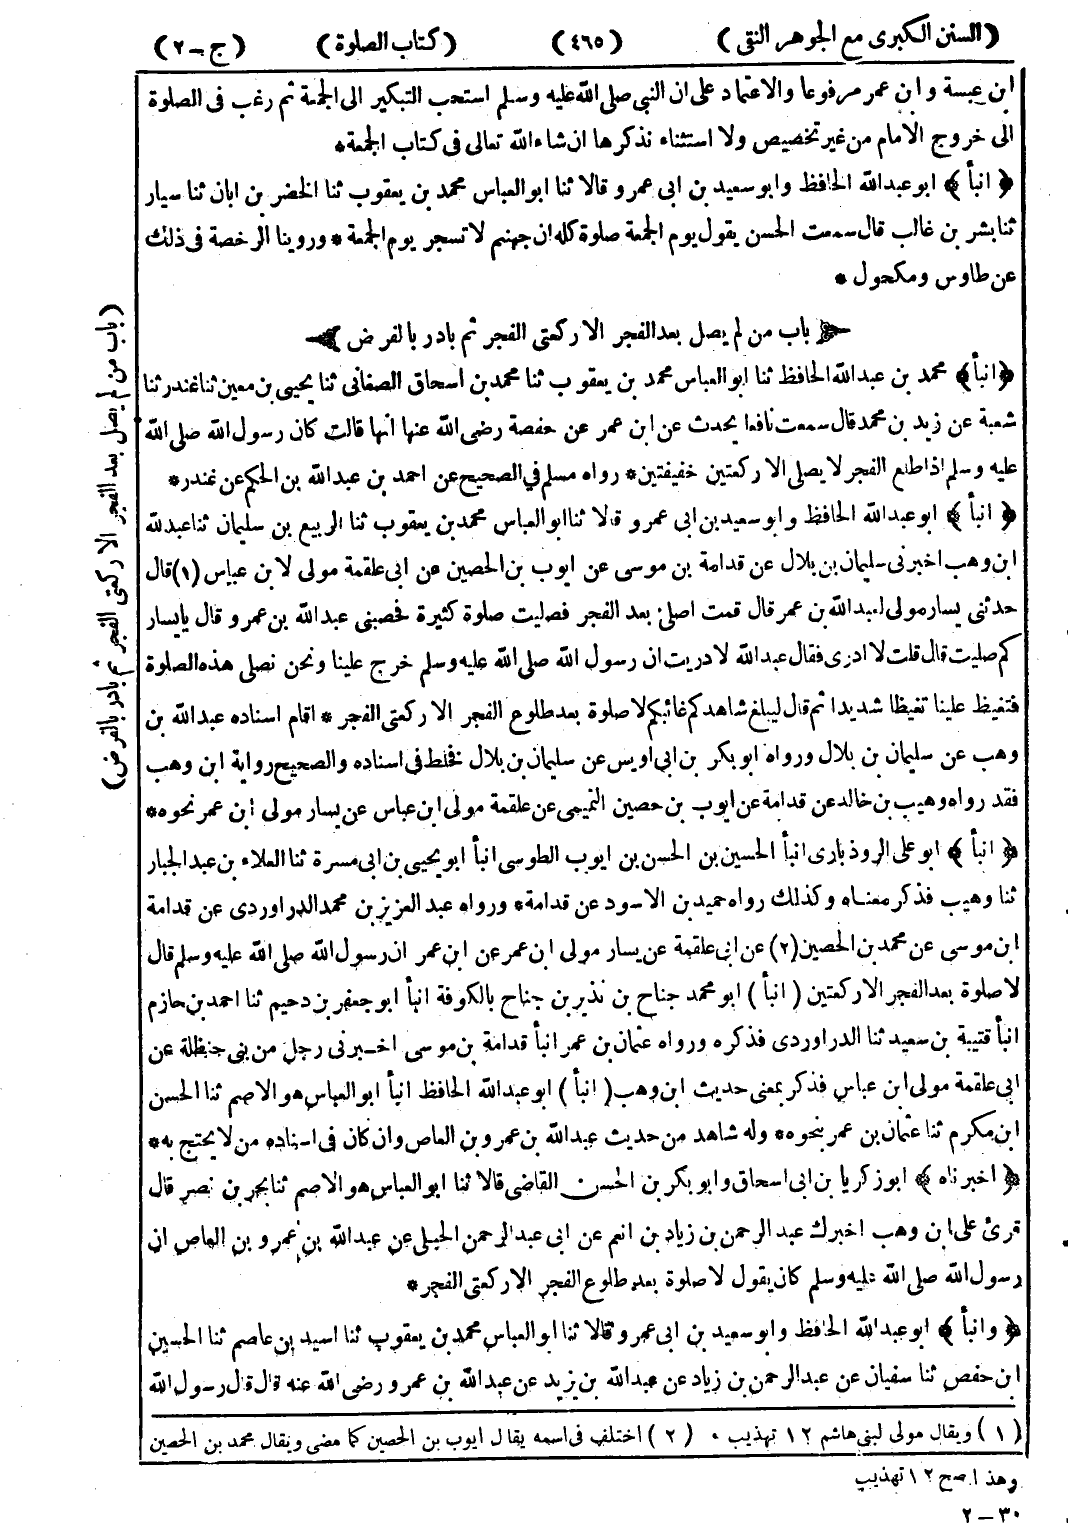 (السنن الكبرى مع الجوهر النقى) (٤٦٥) (كتاب الصلوة) (ج - ٢)
ابن عبسة وابن عمر مرفوعا والاعتماد على ان النبي صلى الله عليه وسلم استحب التبكير الى الجمعة ثم رغب فى الصلوة
الى خروج الامام من غير تخصيص ولا استثناء نذكرها ان شاء الله تعالى فى كتاب الجمعة *
﴿ انبأ ﴾ ابو عبد الله الحافظ وابو سعيد بن ابى عمرو قالا ثنا ابو العباس محمد بن يعقوب ثنا الخضر بن ابان ثنا سيار
ثنا بشر بن غالب قال سمعت الحسن يقول يوم الجمعة صلوة كله ان جهنم لا تسجر يوم الجمعة * وروينا الرخصة فى ذلك
عن طاوس ومكحول *
باب من لم يصل بعد الفجر الا ركعتى الفجر ثم بادر بالفرض
﴿ انبأ ﴾ محمد بن عبد الله الحافظ ثنا ابو العباس محمد بن يعقوب ثنا محمد بن اسحاق الصغانى ثنا يحيى بن معين ثنا غندر ثنا
شعبة عن زيد بن محمد قال سمعت نافعا يحدث عن ابن عمر عن حفصة رضى الله عنها انها قالت كان رسول الله صلى الله
عليه وسلم اذا طلع الفجر لا يصلى الا ركعتين خفيفتين * رواه مسلم في الصحيح عن احمد بن عبد الله بن الحكم عن غندر *
﴿ انبأ ﴾ ابو عبد الله الحافظ وابو سعيد بن ابى عمرو قالا ثنا ابو العباس محمد بن يعقوب ثنا الربيع بن سليمان ثنا عبد الله
ابن وهب اخبرنى سليمان بن بلال عن قدامة بن موسى عن ايوب بن الحصين عن ابى علقمة مولى لابن عباس (١) قال
حدثنى يسار مولى لعبد الله بن عمر قال قمت اصلى بعد الفجر فصليت صلوة كثيرة فحصبنى عبد الله بن عمر و قال يا يسار
كم صليت قال قلت لا ادرى فقال عبد الله لا دريت ان رسول الله صلى الله عليه وسلم خرج علينا ونحن نصلى هذه الصلوة
فتغيظ علينا تغيظا شديدا ثم قال ليبلغ شاهدكم غائبكم لا صلوة بعد طلوع الفجر الا ركعتى الفجر * اقام اسناده عبد الله بن
وهب عن سليمان بن بلال ورواه ابو بكر بن ابى اويس عن سليمان بن بلال فخلط فى اسناده والصحيح رواية ابن وهب
فقد رواه وهيب بن خالد عن قدامة عن ايوب بن حصين التميمى عن علقمة مولى ابن عباس عن يسار مولى ابن عمر نحوه *
﴿ انبأ ﴾ ابو على الروذبارى انبأ الحسين بن الحسن بن ايوب الطوسى انبأ ابو يحيى بن ابى مسرة ثنا العلاء بن عبد الجبار
ثنا وهيب فذكر معناه وكذلك رواه حميد بن الاسود عن قدامة * ورواه عبد العزيز بن محمد الدراوردى عن قدامة
ابن موسى عن محمد بن الحصين (٢) عن ابى علقمة عن يسار مولى ابن عمر عن ابن عمر ان رسول الله صلى الله عليه وسلم قال
لا صلوة بعد الفجر الا ركعتين ( انبأ ) ابو محمد جناح بن نذير بن جناح بالكوفة انبأ ابو جعفر بن دحيم ثنا احمد بن حازم
انبأ قتيبة بن سعيد ثنا الدراوردى فذكره ورواه عثمان بن عمر انبأ قدامة بن موسى اخبرنى رجل من بنى حنظلة عن
ابى علقمة مولى ابن عباس فذكر بمعنى حديث ابن وهب ( انبأ ) ابو عبد الله الحافظ انبأ ابو العباس هو الاصم ثنا الحسن
ابن مكرم ثنا عثمان بن عمر بنحوه * وله شاهد من حديث عبد الله بن عمرو بن العاص وان كان فى اسناده من لا يحتج به *
﴿ اخبرناه ﴾ ابو زكريا بن ابى اسحاق وابو بكر بن الحسن القاضى قالا ثنا ابو العباس هو الاصم ثنا بحر بن نصر قال
قرئ على ابن وهب اخبرك عبد الرحمن بن زياد بن انعم عن ابى عبد الرحمن الحبلى عن عبد الله بن عمرو بن العاص ان
رسول الله صلى الله عليه وسلم كان يقول لا صلوة بعد طلوع الفجر الا ركعتى الفجر *
﴿ وانبأ ﴾ ابو عبد الله الحافظ وابو سعيد بن ابى عمرو قالا ثنا ابو العباس محمد بن يعقوب ثنا اسيد بن عاصم ثنا الحسين
ابن حفص ثنا سفيان عن عبد الرحمن بن زياد عن عبد الله بن يزيد عن عبد الله بن عمرو رضى الله عنه قال قال رسول الله
(١) ويقال مولى لبنى هاشم ١٢ تهذيب . (٢) اختلف فى اسمه يقال ايوب بن الحصين كما مضى ويقال محمد بن الحصين
وهذا اصح ١٢ تهذيب
٣٠ - ٢
(باب من لم يصل بعد الفجر الا ركعتى الفجر ثم بادر بالفرض)